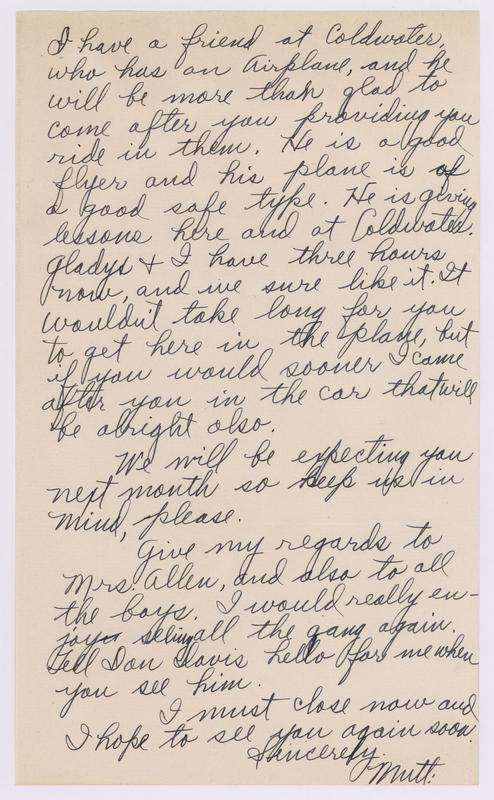 I have a friend at Coldwater,
who has an Airplane, and he
will be more than glad to
come after you providing you
ride in them. He is a good
flyer and his plane is of
a good safe type. He is giving
lessons here and at Coldwater.
Gladys & I have three hours
now, and we sure like it. It
wouldn't take long for you
to get here in the plane, but
if you would sooner I came
after you in the car that will
be alright also.
We will be expecting you
next month so keep us in
mind, please.
Give my regards to
Mrs. Allen, and also to all
the boys. I would really en-
joy seeing all the gang again.
Tell Don Davis hello for me when
you see him.
I must close now and
I hope to see you again soon.
Sincerely
Mutt.